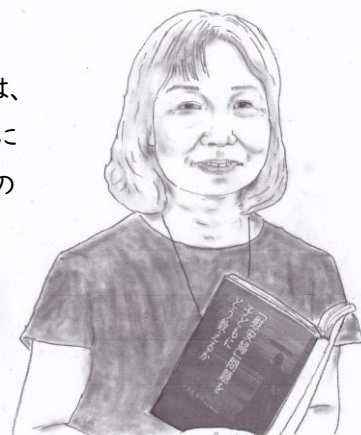 は、
に
の
「慰安婦」問題を
子どもに
どう教えるか